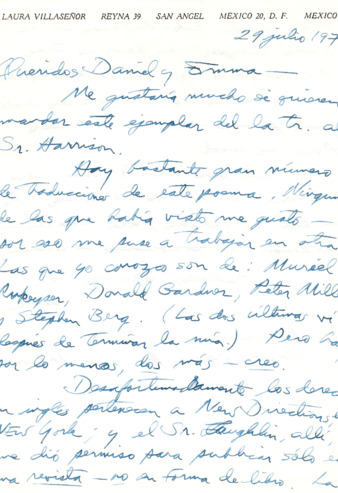 LAURA VILLASEÑOR REYNA 39 SAN ANGEL MEXICO 20, D. F. MEXICO
29 julio 197
Queridos Daniel y Emma —
Me gustaría mucho si quieren
mandar este ejemplar del la tr. al
Sr. Harrison.
Hay bastante gran número
de traducciones de este poema. Ningun
de las que había visto me gustó —
por eso me puse a trabajar en otra
Las que yo conozco son de: Muriel
Rukeyser, Donald Gardner, Peter Mill
y Stephen Berg. (Las dos últimas vi
después de terminar la mía.) Pero ha
por lo menos, dos más — creo.
Desafortunadamente los derec
n inglés pertenecen a New Directions
NEW YORK; y el Sr. Laughlin, allí,
me dió permiso para publicar sólo e
una revista — no en forma de libro. La